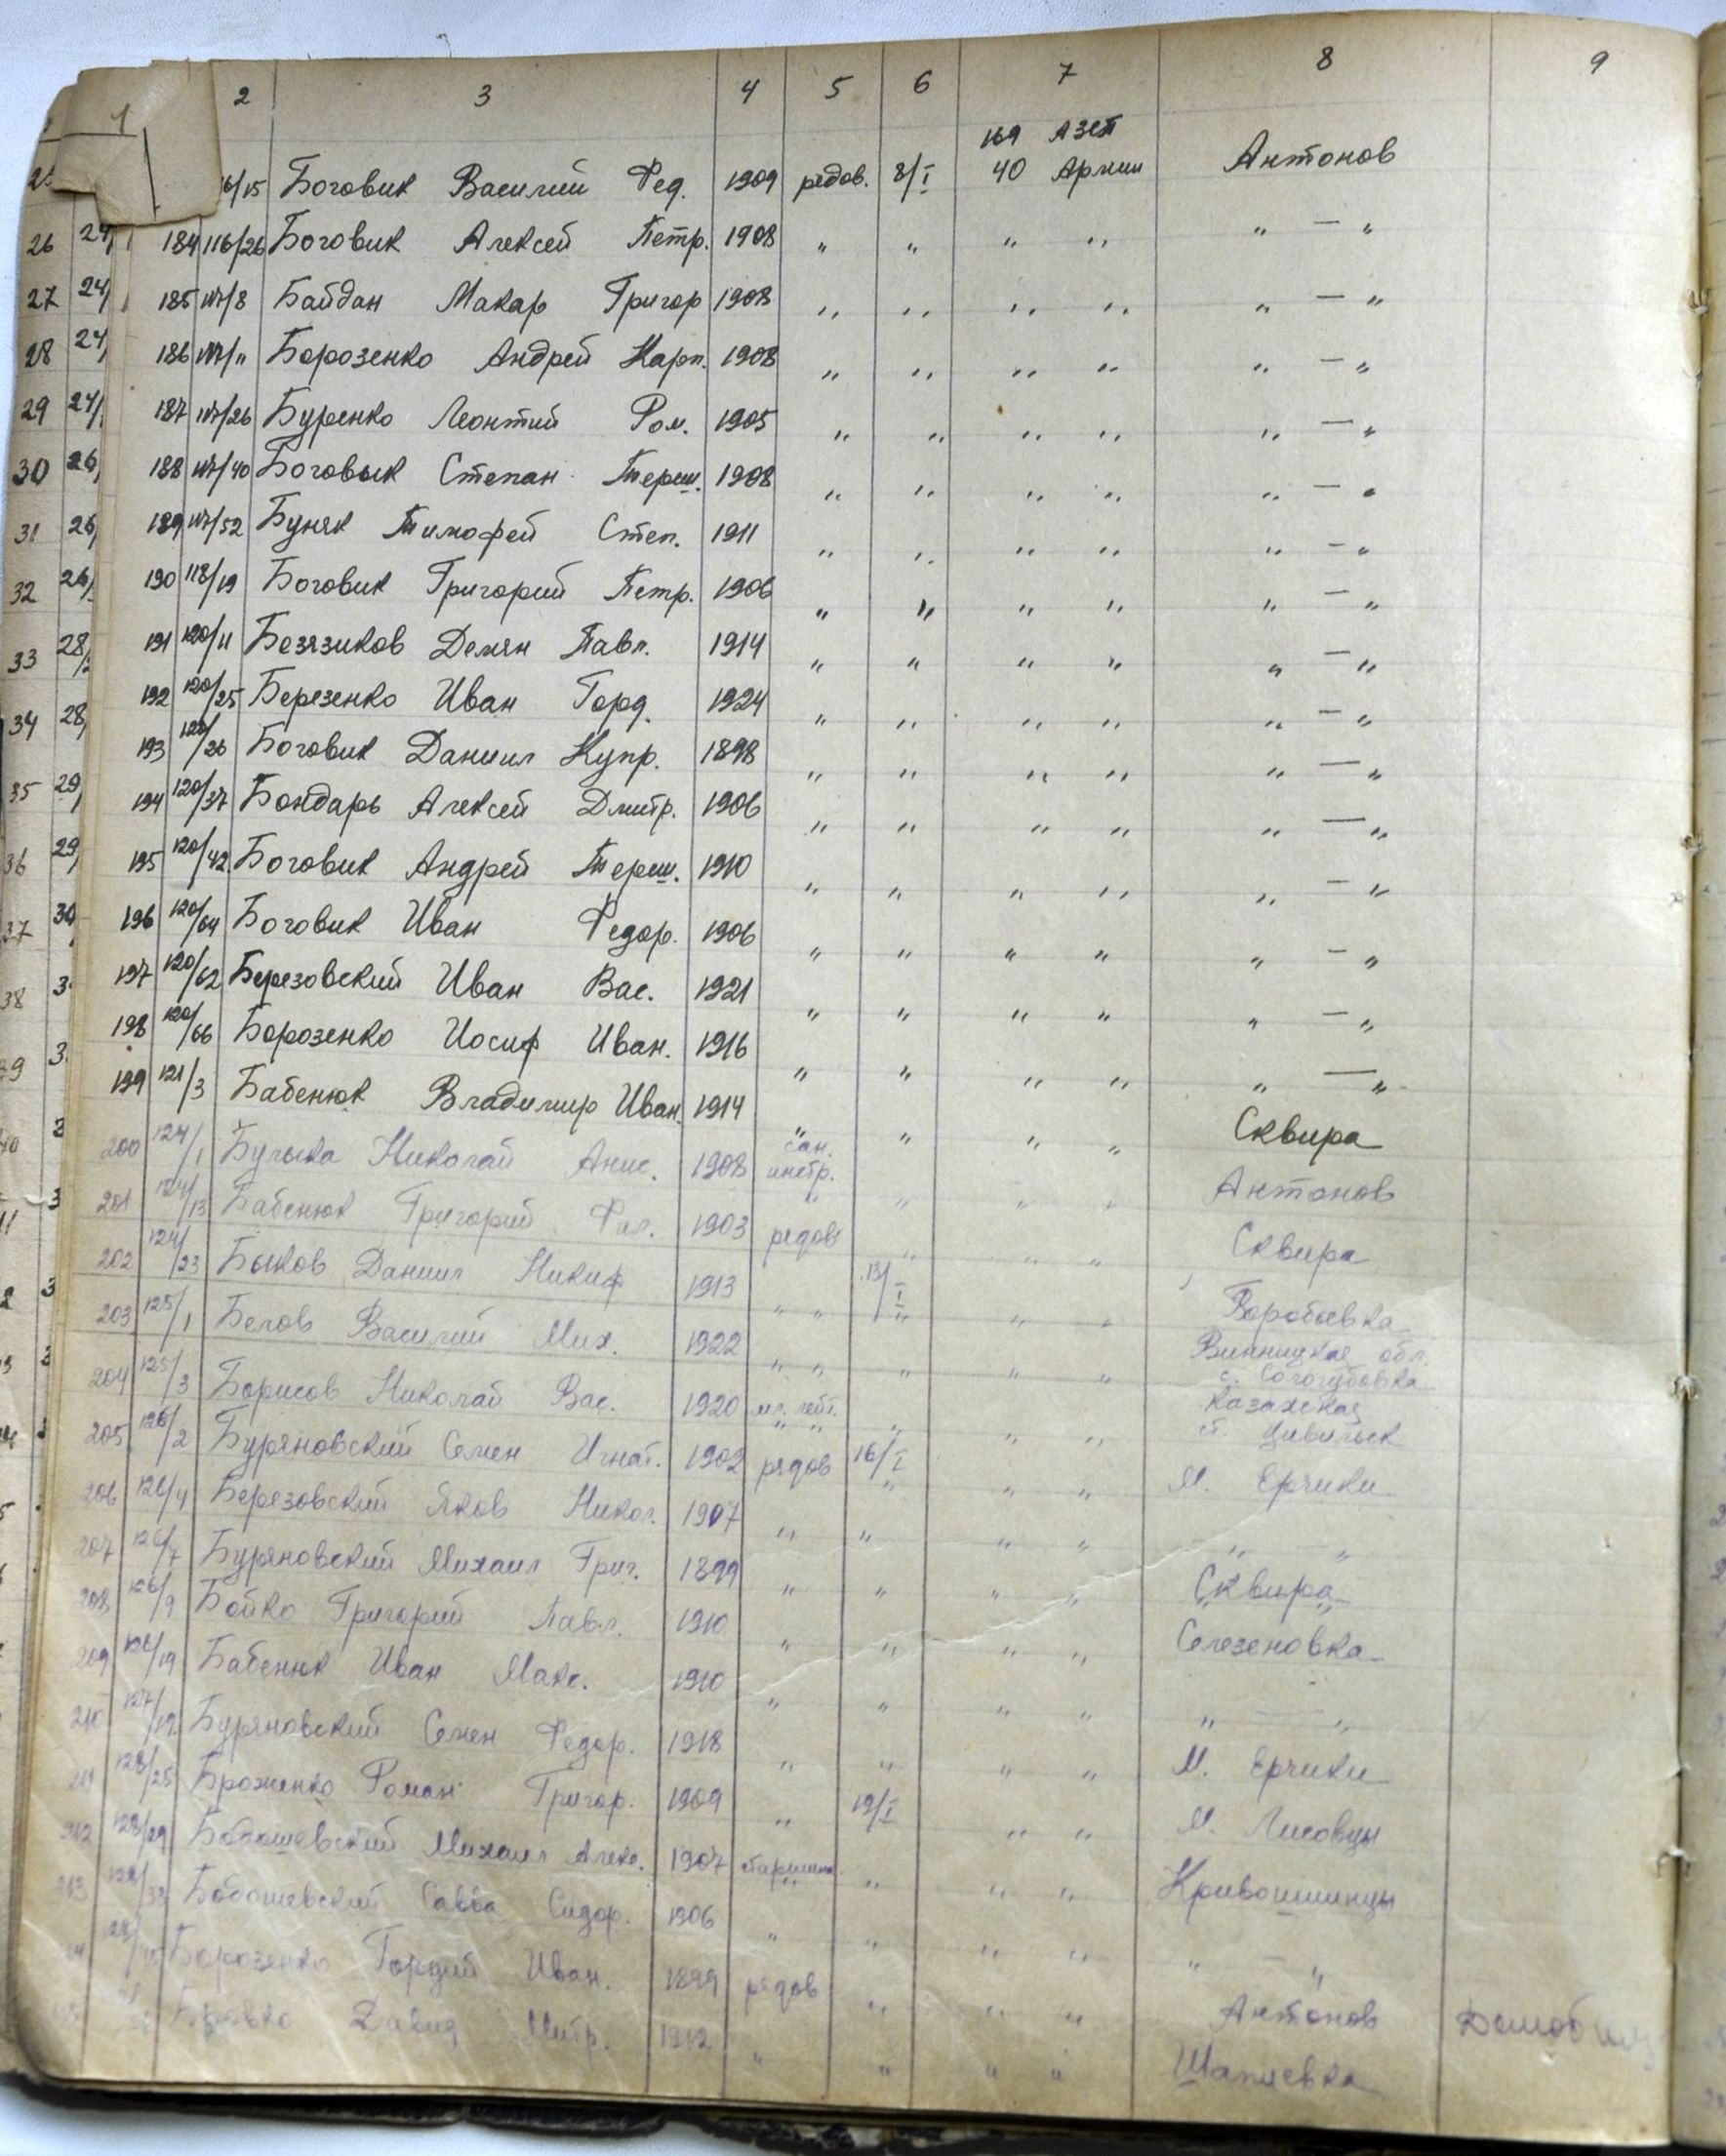 1 2 3 4 5 6 7 8 9
169 АЗСП
16/15 Боговик Василий Фед. 1909 рядов. 8/I 40 Армии Антонов
26 24/ 184 116/26 Боговик Алексей Петр. 1908 " " " " " — "
27 24/ 185 117/8 Байдан Макар Григор 1908 " " " " " — "
28 24/ 186 117/11 Борозенко Андрей Карп. 1908 " " " " " — "
29 24/ 187 117/26 Буренко Леонтий Ром. 1905 " " " " " — "
30 26/ 188 117/40 Боговик Степан Тереш. 1908 " " " " " — "
31 26/ 189 117/52 Буняк Тимофей Степ. 1911 " " " " " — "
32 26/ 190 118/19 Боговик Григорий Петр. 1906 " " " " " — "
33 28/ 191 120/11 Безязиков Демян Павл. 1914 " " " " " — "
34 28/ 192 120/25 Березенко Иван Горд. 1924 " " " " " — "
193 120/26 Боговик Даниил Купр. 1898 " " " " " — "
35 29/ 194 120/37 Бондарь Алексей Дмитр. 1906 " " " " " — "
36 29/ 195 120/42 Боговик Андрей Тереш. 1910 " " " " " — "
37 30/ 196 120/64 Боговик Иван Федор. 1906 " " " " " — "
38 3 197 120/62 Березовский Иван Вас. 1921 " " " " " — "
198 120/66 Борозенко Иосиф Иван. 1916 " " " " " — "
199 121/3 Бабенюк Владимир Иван. 1914 " " " " Сквира
200 124/1 Булыка Николай Анис. 1908 сан. инстр. " " " Антонов
201 124/13 Бабенюк Григорий Фил. 1903 рядов " " " Сквира
202 124/23 Быков Даниил Никиф 1913 " " 13/I " " Воробьевка
203 125/1 Белов Василий Мих. 1922 " " " " " Винницкая обл.
с. Сологубовка
204 125/3 Борисов Николай Вас. 1920 мл. лейт. " " " Казахская
ст. Цивильск
205 126/2 Буряновский Семен Игнат. 1902 рядов 16/I " " М. Ерчики
206 126/4 Березовский Яков Никол. 1907 " " " " " — "
207 126/7 Буряновский Михаил Григ. 1899 " " " " Сквира
208 126/9 Бойко Григорий Павл. 1910 " " " " Селезеновка
209 126/19 Бабенюк Иван Макс. 1910 " " " " " — "
210 127/19 Буряновский Семен Федор. 1918 " " " " М. Ерчики
211 128/25 Броженко Роман Григор. 1909 " 19/I " " М. Лисовцы
212 128/29 Бодашевский Михаил Алекс. 1907 старшина " " " Кривошиинцы
213 128/33 Бодашевский Савва Сидор. 1906 " " " " " — "
Борозенко Гордий Иван. 1899 рядов " " " Антонов
Бровко Давид Митр. 1912 " " " " Шапиевка